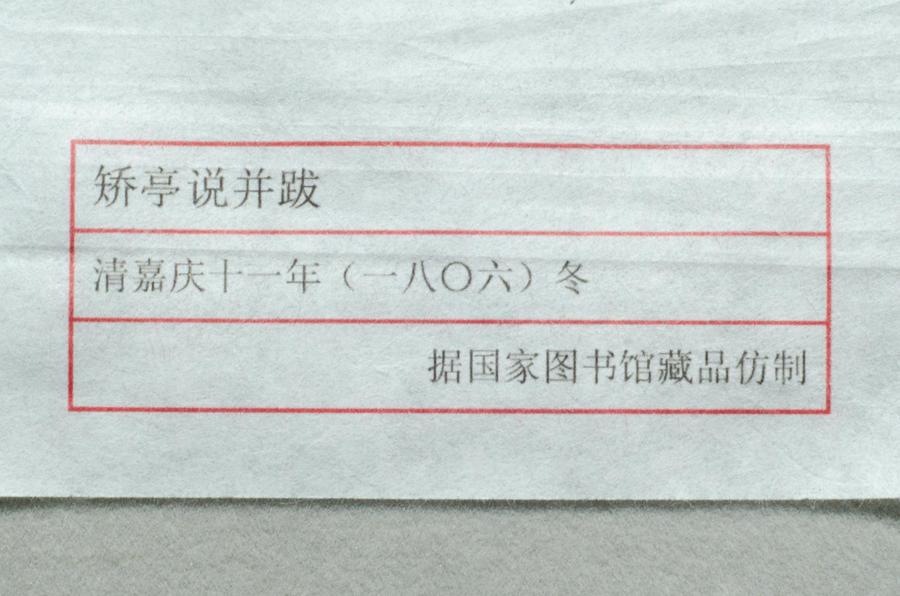 矫亭说并跋
清嘉庆十一年（一八〇六）冬
据国家图书馆藏品仿制